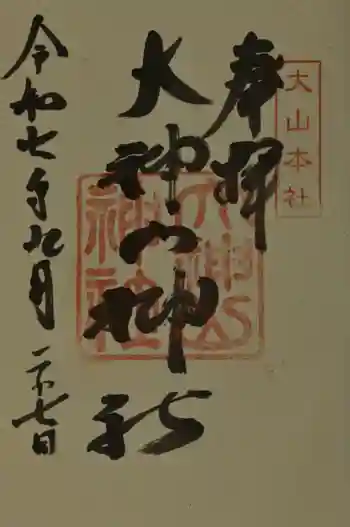 大山本社
奉拝
大神山神社
大神山
神社
令和七年九月二十七日